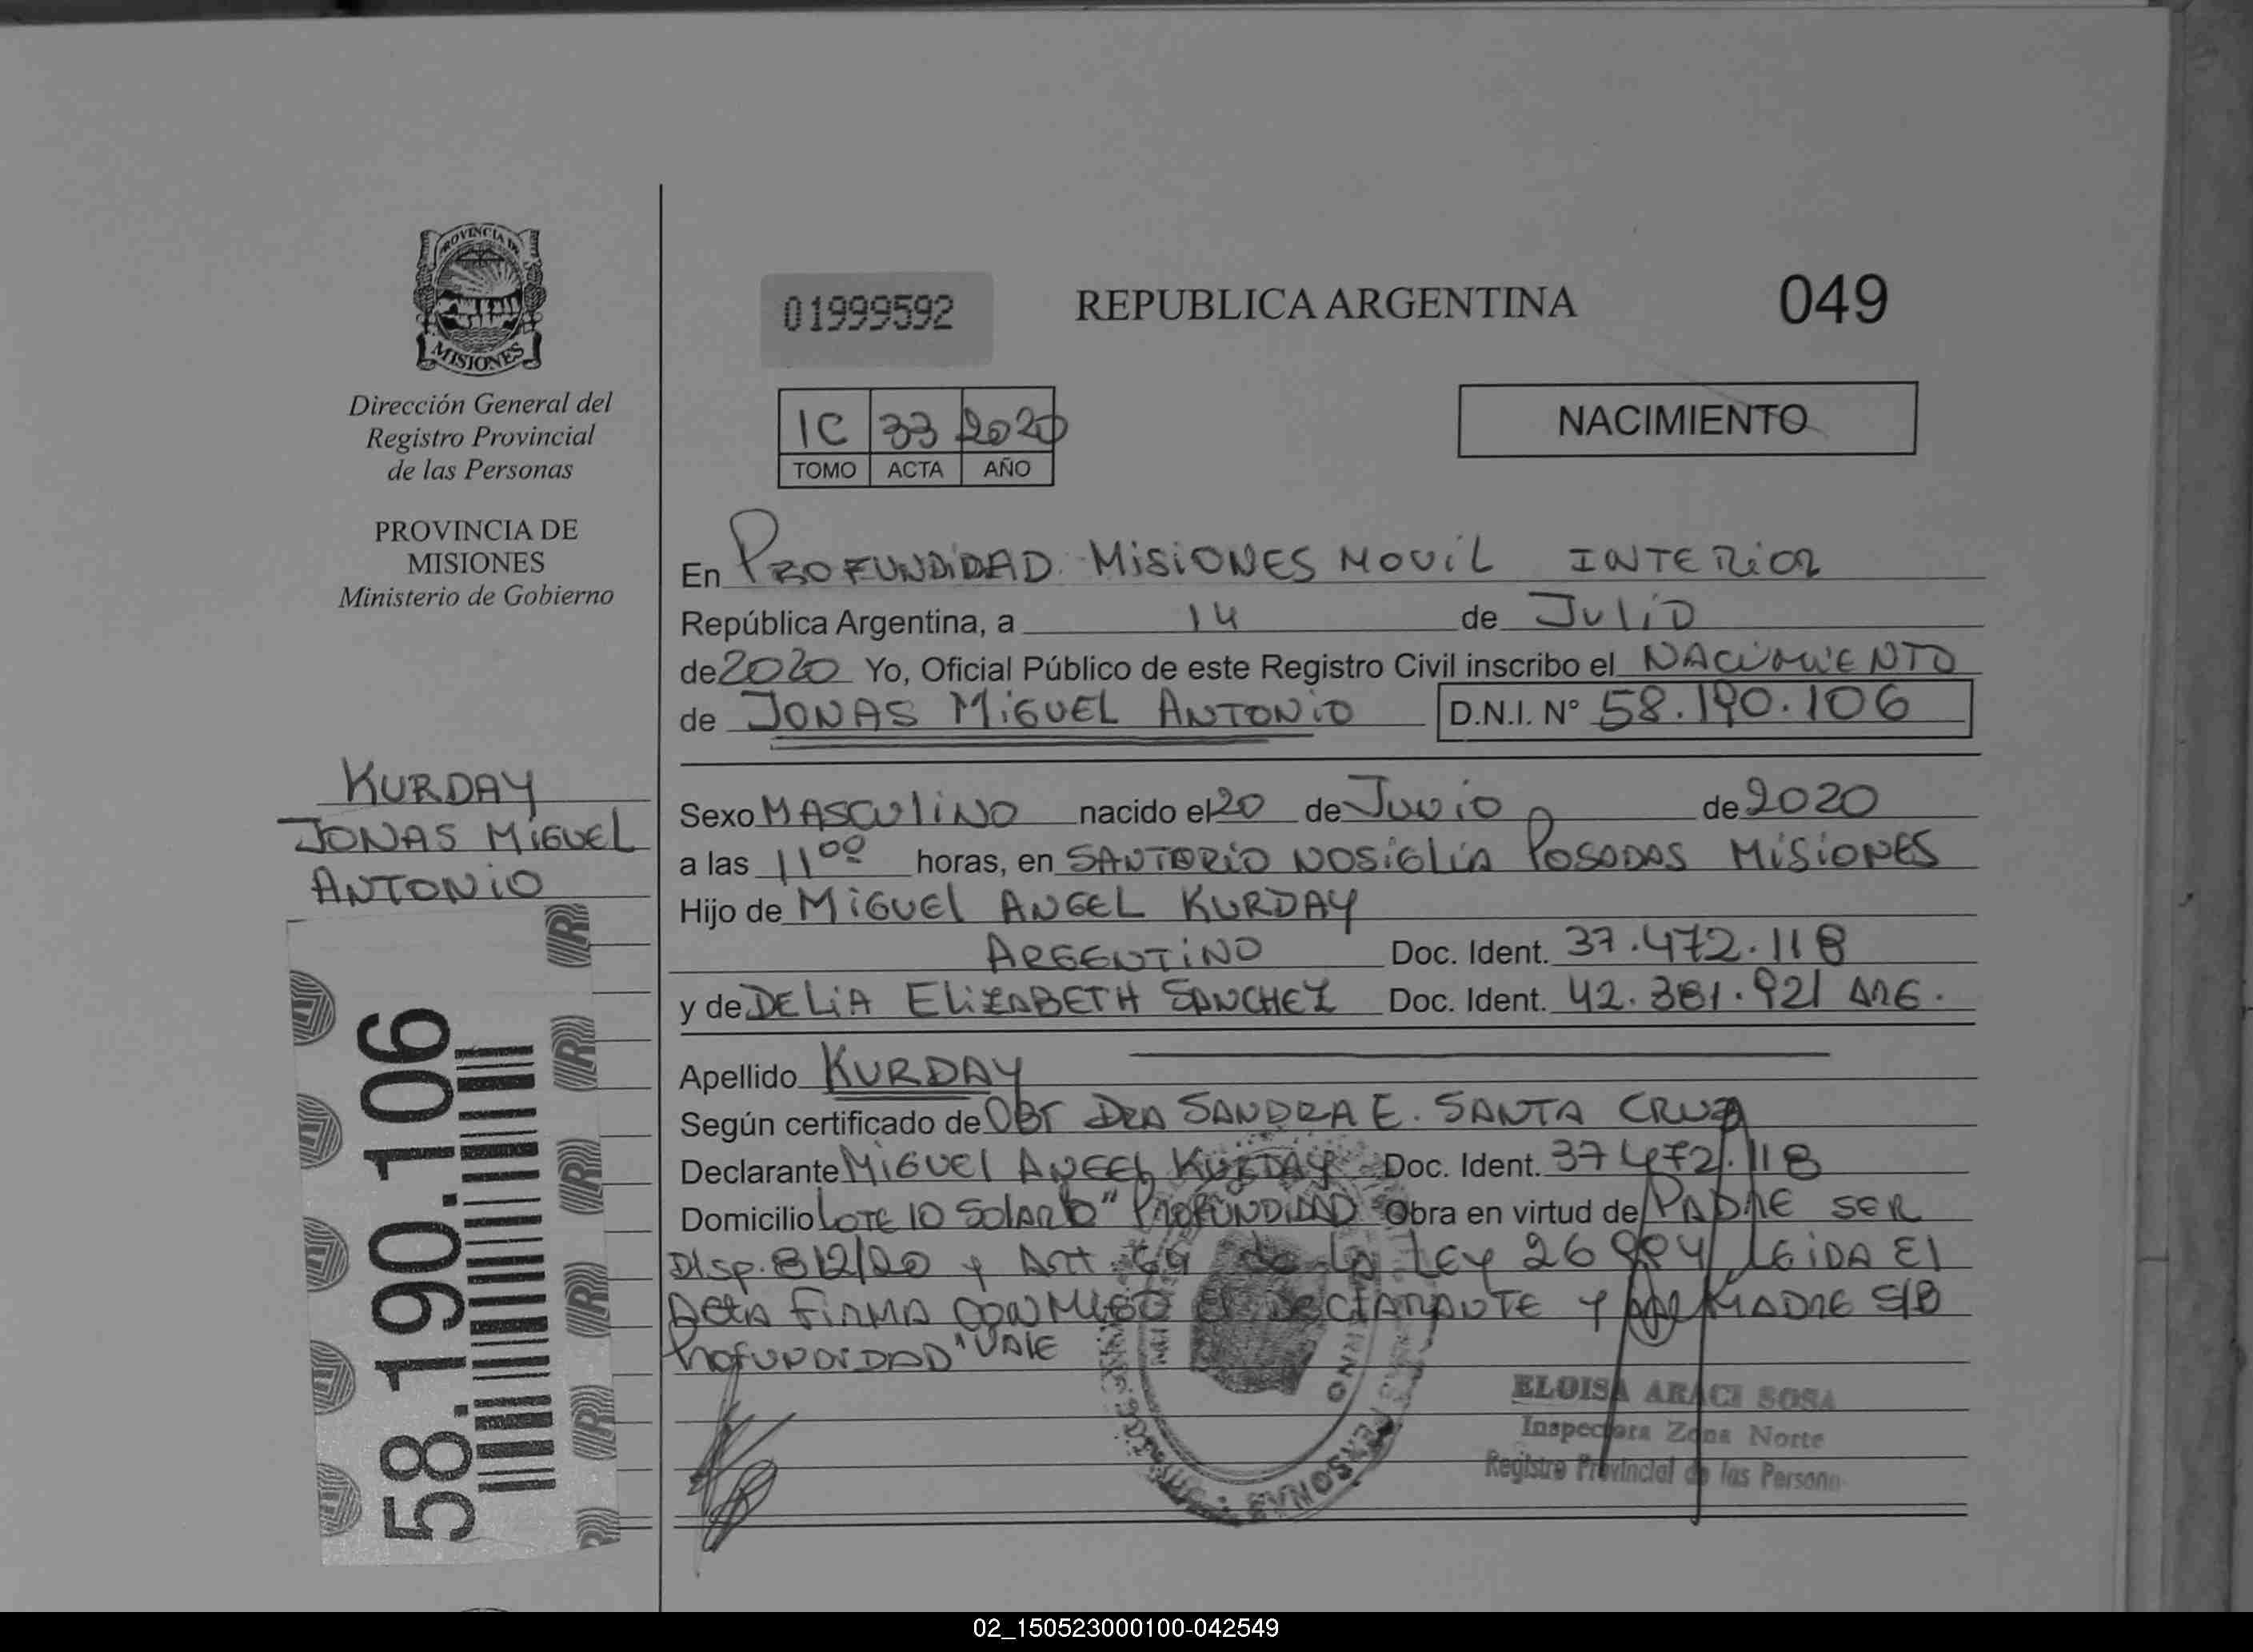 PROVINCIA DE
MISIONES
Dirección General del
Registro Provincial
de las Personas
PROVINCIA DE
MISIONES
Ministerio de Gobierno
KURDAY
JONAS MIGUEL
ANTONIO
58.190.106
01999592
REPUBLICA ARGENTINA
049
1C 33 2020
TOMO ACTA AÑO
NACIMIENTO
En PROFUNDIDAD MISIONES MOVIL INTERIOR
República Argentina, a 14 de JULIO
de 2020 Yo, Oficial Público de este Registro Civil inscribo el NACIMIENTO
de JONAS MIGUEL ANTONIO D.N.I. N° 58.190.106
Sexo MASCULINO nacido el 20 de JUNIO de 2020
a las 11 00 horas, en SANTORIO NOSIGLIA POSADAS MISIONES
Hijo de MIGUEL ANGEL KURDAY
ARGENTINO Doc. Ident. 37.472.118
y de DELIA ELIZABETH SANCHEZ Doc. Ident. 42.381.921 ARG.
Apellido KURDAY
Según certificado de OBT DRA SANDRA E. SANTA CRUZ
Declarante MIGUEL ANGEL KURDAY Doc. Ident. 37 472.118
Domicilio LOTE 10 SOLAR "PROFUNDIDAD Obra en virtud de PADRE SER
Disp. 812/20 y Art de la Ley 26 994 LEIDA El
Acta FIRMA CONMIGO El DECLARANTE Y MADRE S/B
PROFUNDIDAD" VALE
PERSONAS
ELOISA ARACI SOSA
Inspectora Zona Norte
Registro Provincial de las Persona
02_150523000100-042549